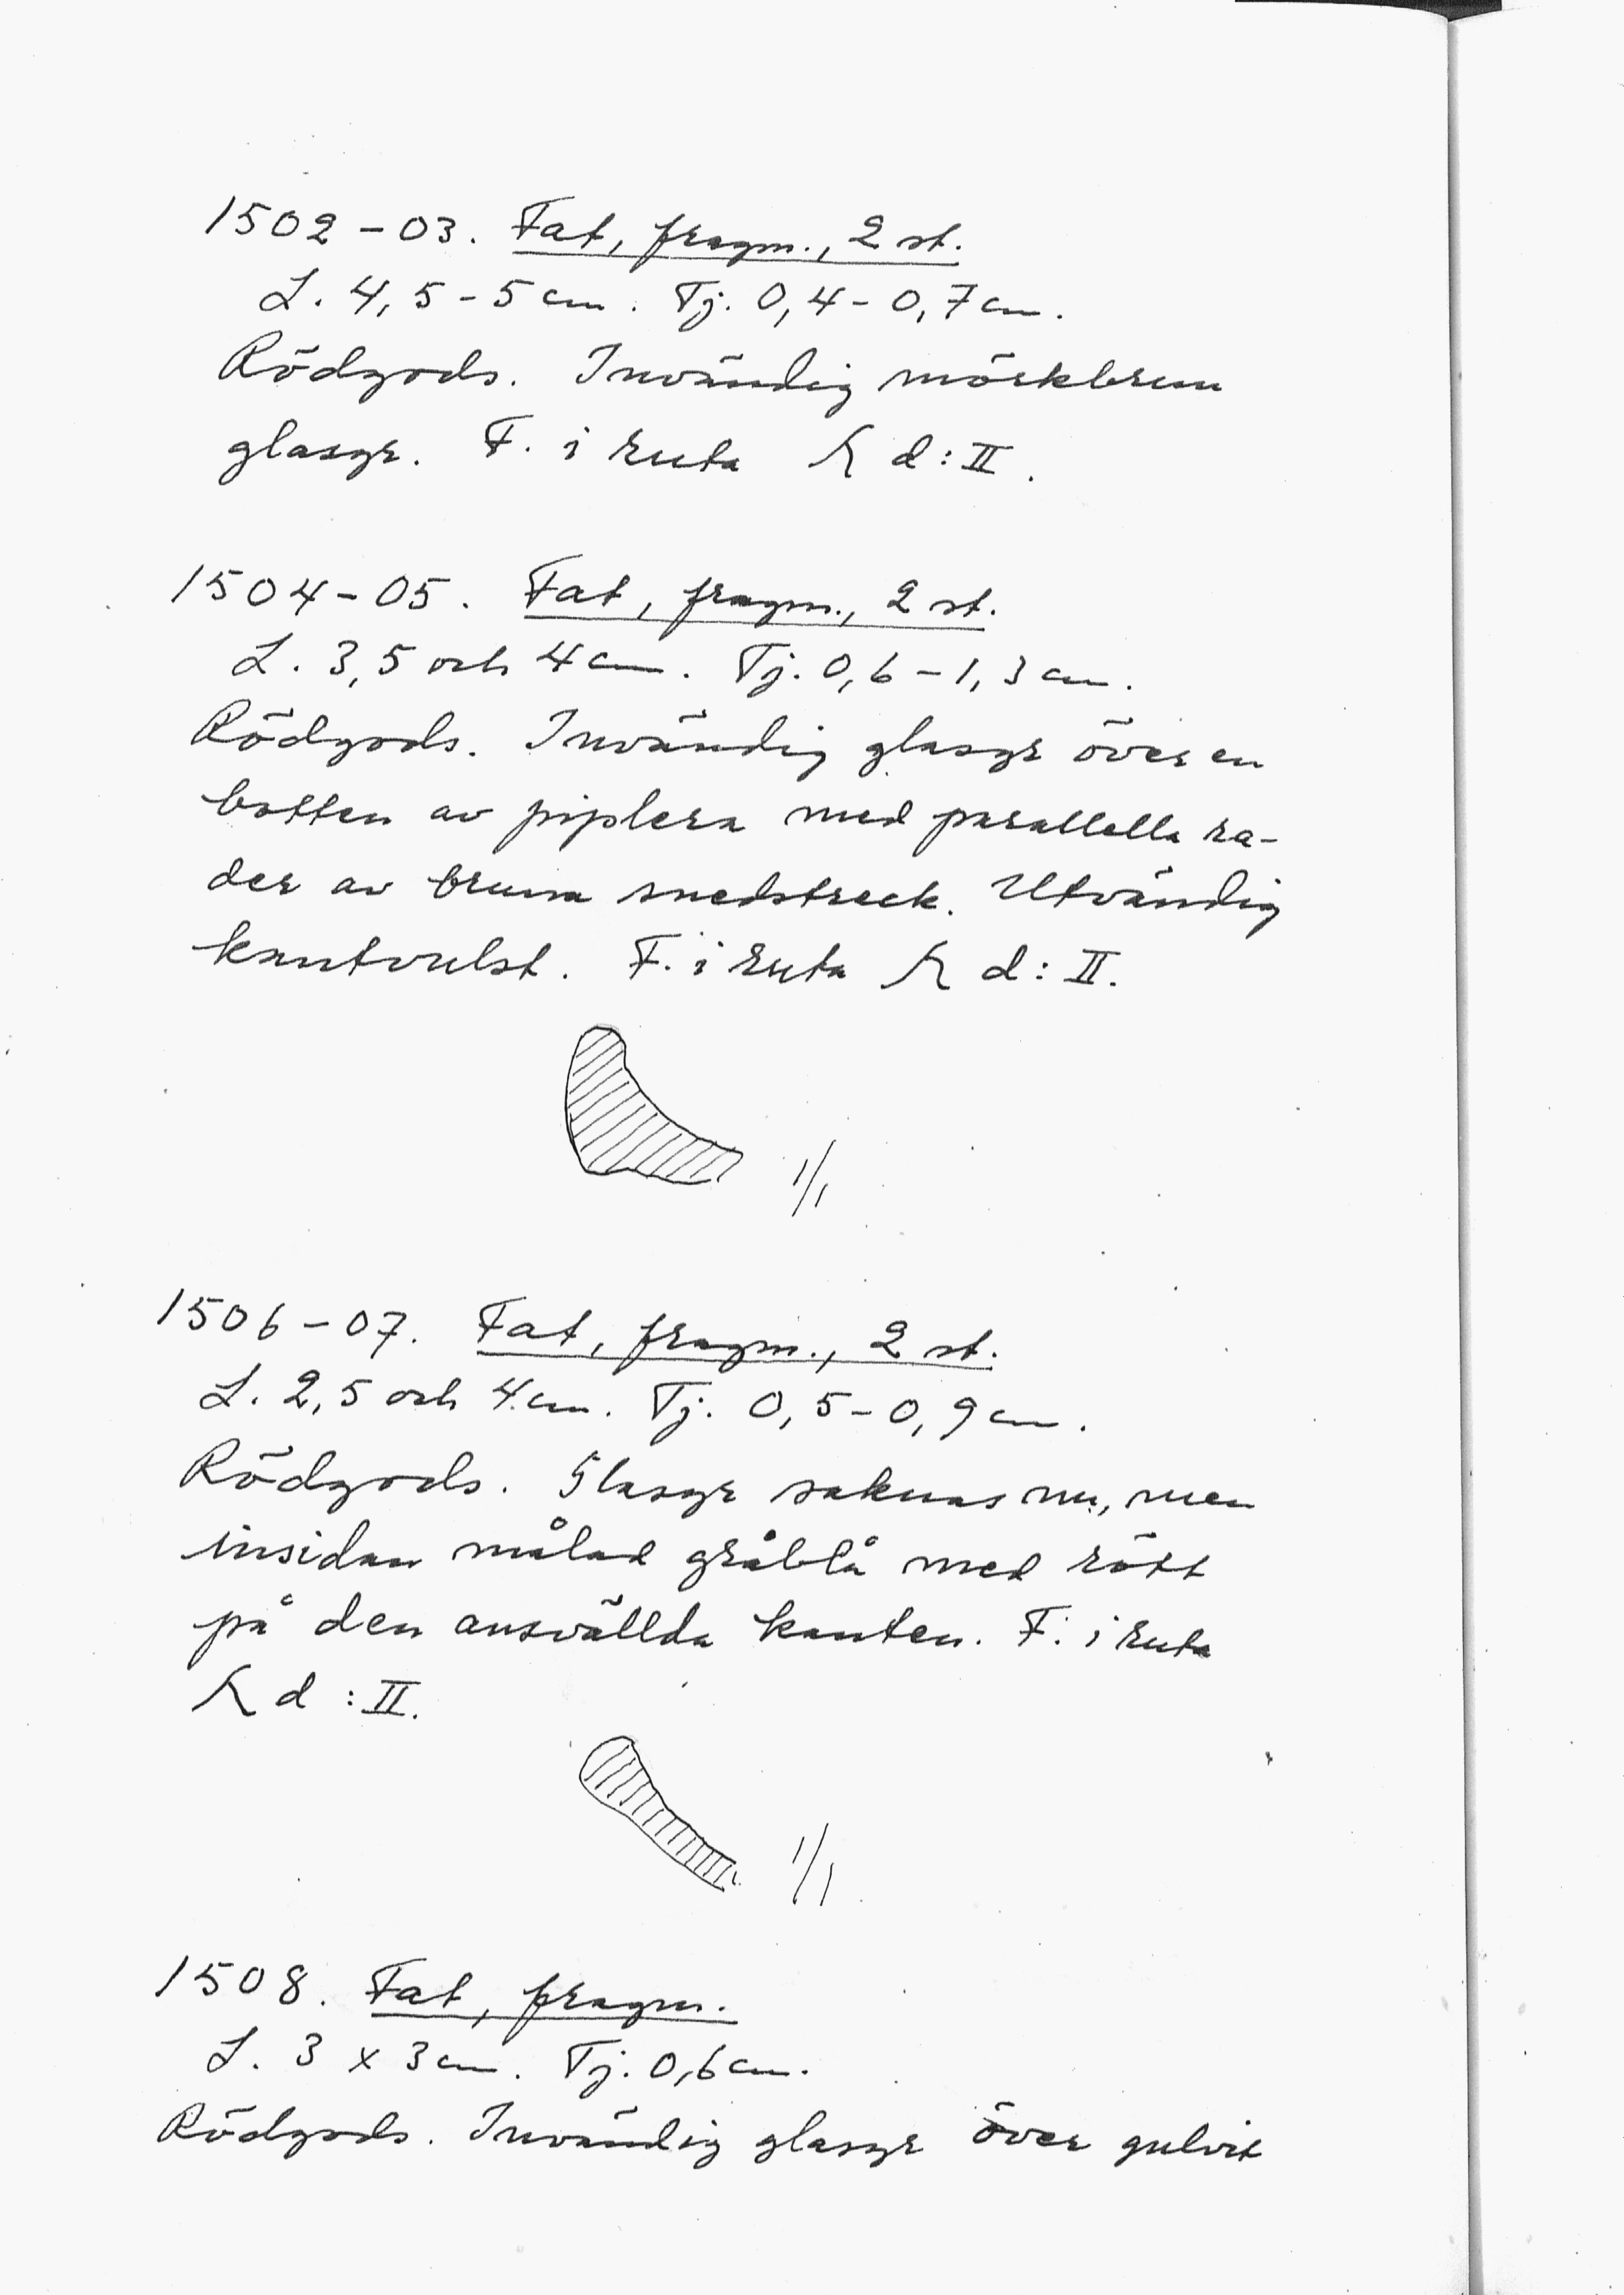 1502-03. Fat, fragm., 2 st.
L. 4,5-5 cm. Tj. 0,4-0,7 cm.
Rödgods. Invändig mörkbrun
glasyr. F. i ruta R d:II.
1504-05. Fat, fragm., 2 st.
L. 3,5 och 4 cm. Tj. 0,6-1,3 cm.
Rödgods. Invändig glasyr över en
botten av piplera med parallella ra-
der av bruna snedstreck. Utvändig
kantvulst. F. i ruta R d:II.
1/1
1506-07. Fat, fragm., 2 st.
L. 2,5 och 4 cm. Tj. 0,5-0,9 cm.
Rödgods. Glasyr saknas nu, men
insidan målad gråblå med rött
på den ansvällda kanten. F. i ruta
R d:II.
1/1
1508. Fat, fragm.
L. 3 x 3 cm. Tj. 0,6 cm.
Rödgods. Invändig glasyr över gulvit